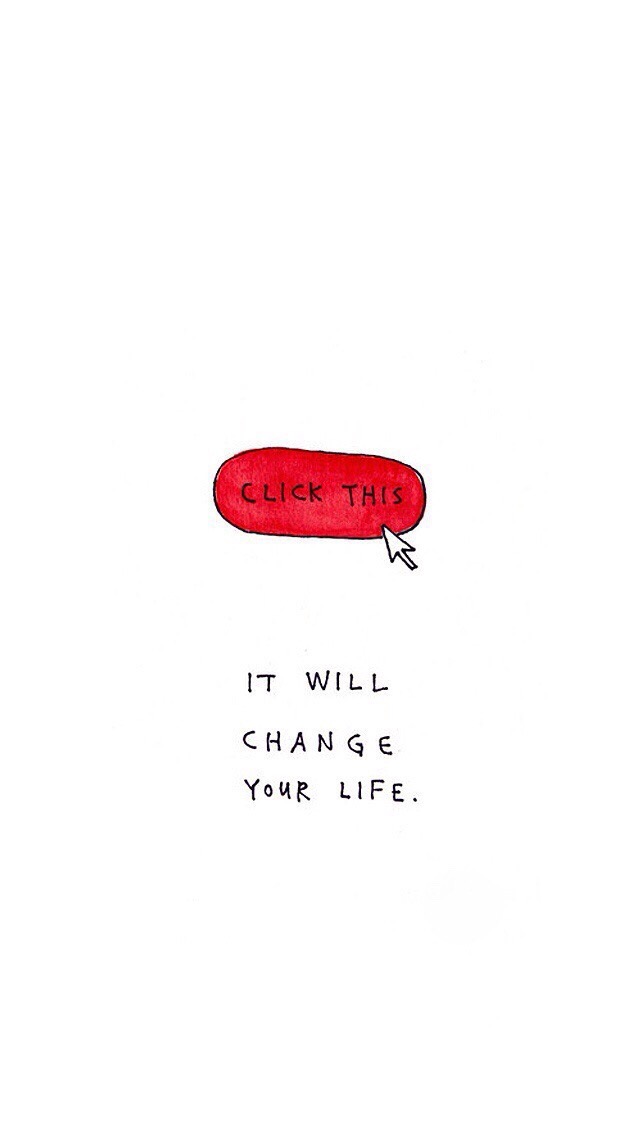 CLICK THIS
IT WILL
CHANGE
YOUR LIFE.